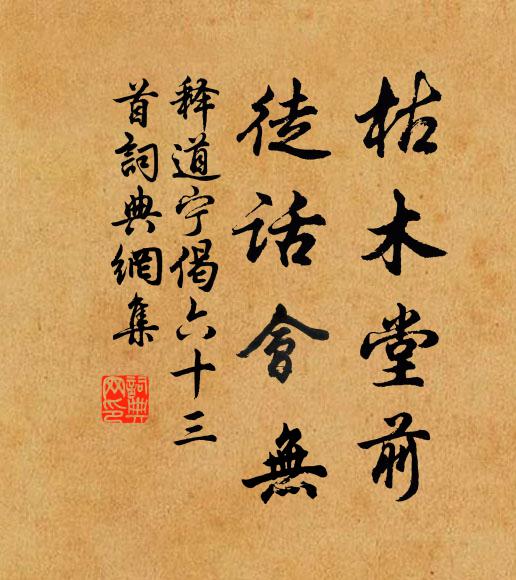 枯木堂前
徒話會無
释道宁偈六十三
首詞典網集
詞典网印